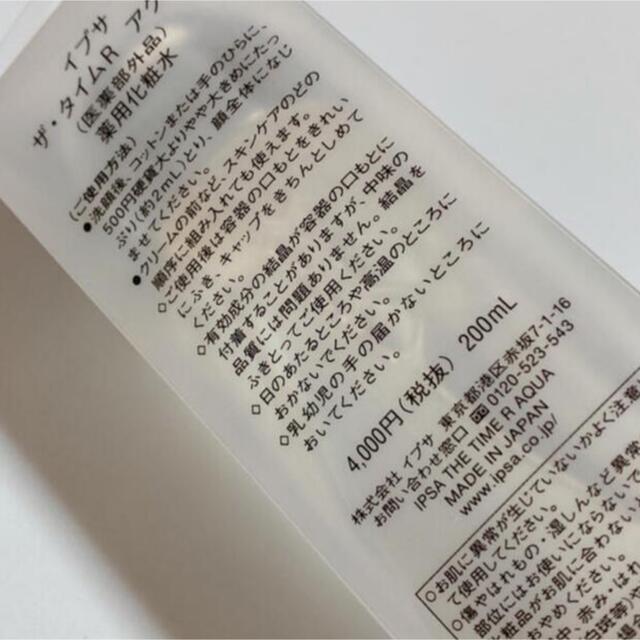 イプサ
ザ・タイムR アク
(医薬部外品)
薬用化粧水
(ご使用方法)
●洗顔後、コットンまたは手のひらに、
500円硬貨大よりやや大きめにたっ
ぷり(約2mL)とり、顔全体になじ
ませてください。
●クリームの前など、スキンケアのどの
順序に組み入れても使えます。
◇ご使用後は容器の口もとをきれい
にふき、キャップをきちんとしめて
ください。
◇有効成分の結晶が容器の口もとに
付着することがありますが、中味の
品質には問題ありません。結晶を
ふきとってご使用ください。
◇日のあたるところや高温のところに
おかないでください。
◇乳幼児の手の届かないところに
おいてください。
4,000円(税抜) 200mL
株式会社 イプサ 東京都港区赤坂7-1-16
お問い合わせ窓口 0120-523-543
IPSA THE TIME R AQUA
MADE IN JAPAN
www.ipsa.co.jp/
○お肌に異常が生じていないかよく注意
て使用してください。
○傷、はれもの、湿しんなど異常
部位にはお使いにならないで
○化粧品がお肌に合わない
おやめください。
赤み・はれ